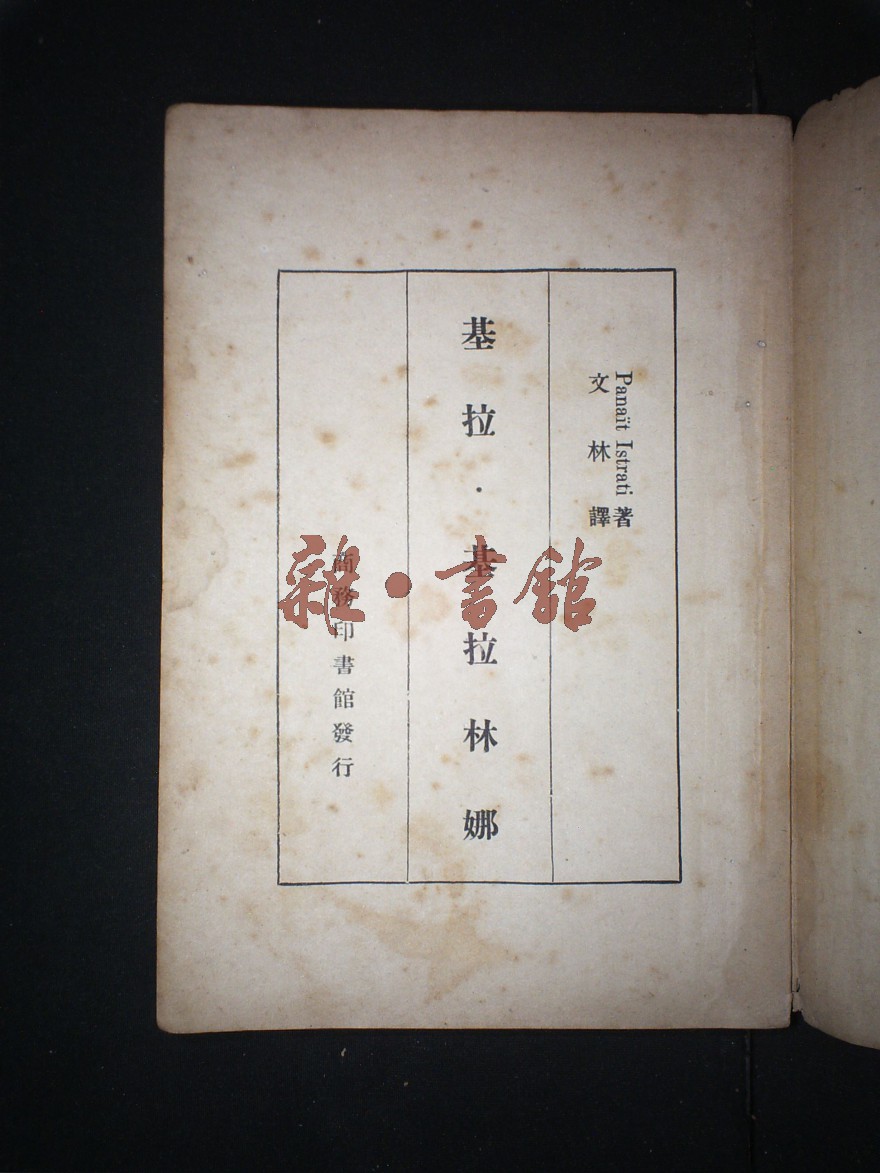 Panaït Istrati 著
文林譯
基拉·基拉林娜
商務印書館發行
雜·書館